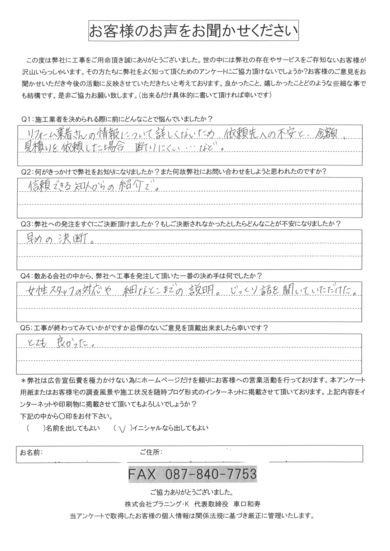 お客様のお声をお聞かせください
この度は弊社に工事をご用命頂き誠にありがとうございました。世の中には弊社の存在やサービスをご存知ないお客様が
沢山いらっしゃいます。その方たちに弊社をよく知って頂くためのアンケートにご協力頂けないでしょうか?お客様のご意見をお
聞かせいただき今後の活動に反映させていただきたいと考えております。良かったこと、嬉しかったことどのような些細な事で
も結構です。是非ご協力お願い致します。(出来るだけ具体的に書いて頂ければ幸いです)
Q1:施工業者を決められる際に前にどんなことで悩んでいましたか?
リフォーム業者さんの情報について詳しくないため 依頼先への不安と、金額、
見積りを依頼した場合 断りにくい…など。
Q2:何がきっかけで弊社をお知りになりましたか?また何故弊社にお問い合わせをしようと思われたのですか?
信頼できる知人からの紹介で。
Q3:弊社への発注をすぐにご決断頂けましたか?もしご決断されなかったとしたらどんなことが不安になりましたか?
早めの決断。
Q4:数ある会社の中から、弊社へ工事を発注して頂いた一番の決め手は何でしたか?
女性スタッフの対応や 細かなとこまでの説明。じっくり話を聞いていただけた。
Q5:工事が終わってみていかがですか忌憚のないご意見を頂戴出来ましたら幸いです?
とても良かった。
*弊社は広告宣伝費を極力かけない為にホームページだけを頼りにお客様への営業活動を行っております。本アンケート
用紙またはお客様宅の調査風景や施工状況を随時ブログ形式のインターネットに掲載させて頂いております。上記内容をイ
ンターネットや印刷物に掲載させて頂いてもよろしいでしょうか?
下記の中から〇印をお付下さい。
( )名前を出してもよい (✓)イニシャルなら出してもよい
お名前: ご住所:
FAX 087-840-7753
ご協力ありがとうございました。
株式会社プランニング・K 代表取締役 車口和寿
当アンケートで取得したお客様の個人情報は関係法規に基づき厳正に管理いたします。